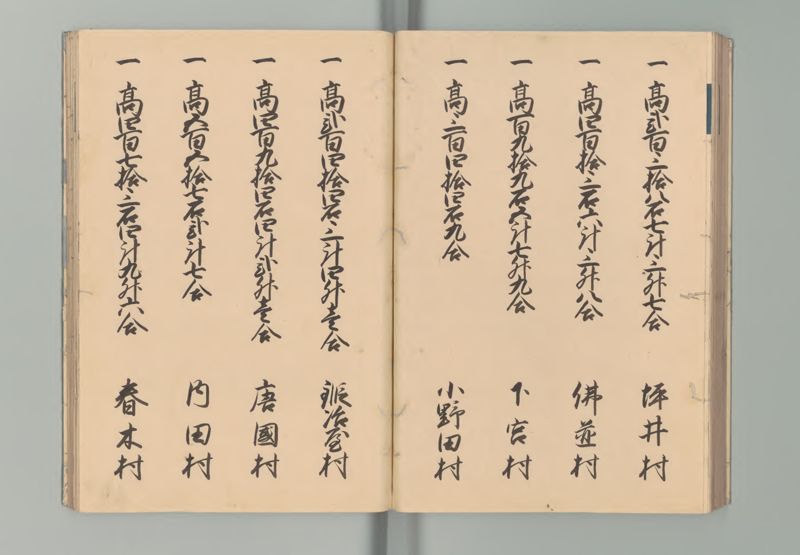 一 高弐百三拾八石七斗三升七合 坪井村
一 高四百拾三石六斗三升八合 佛並村
一 高百九拾九石五斗七升九合 下宮村
一 高三百四拾四石九合 小野田村
一 高弐百四拾四石三斗四升壱合 鍛冶屋村
一 高四百九拾四石四斗弐升壱合 唐國村
一 高五百五拾七石弐斗七合 内田村
一 高四百七拾三石四斗九升六合 春木村